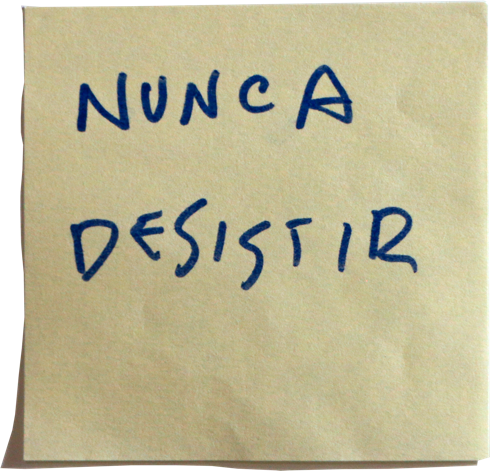 NUNCA
DESISTIR